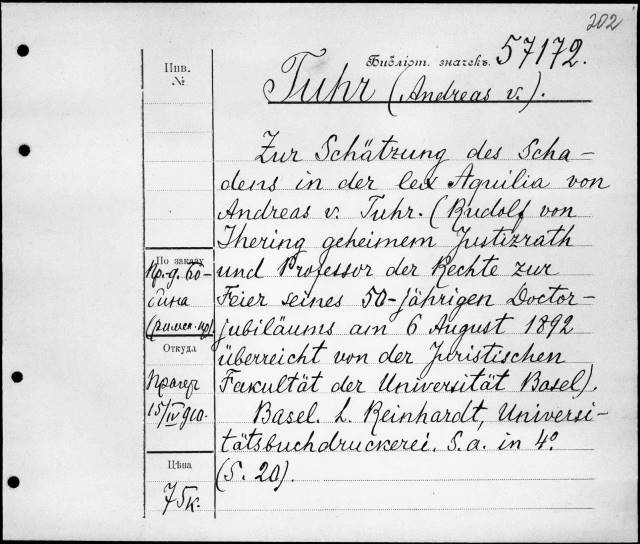 202
Библіот. значекъ. 57172.
Инв.
№
Tuhr (Andreas v.).
Zur Schätzung des Scha-
dens in der lex Aquilia von
Andreas v. Tuhr. (Rudolf von
Ihering geheimem Justizrath
und Professor der Rechte zur
Feier seines 50-jährigen Doctor-
jubiläums am 6 August 1892
überreicht von der Juristischen
Fakultät der Universität Basel).
Basel. L. Reinhardt, Universi-
tätsbuchdruckerei. S. a. in 4°.
(S. 20).
По заказу
Пр-д.
сина
Откуда
Прагер
15/IV 910.
Цѣна
75к.